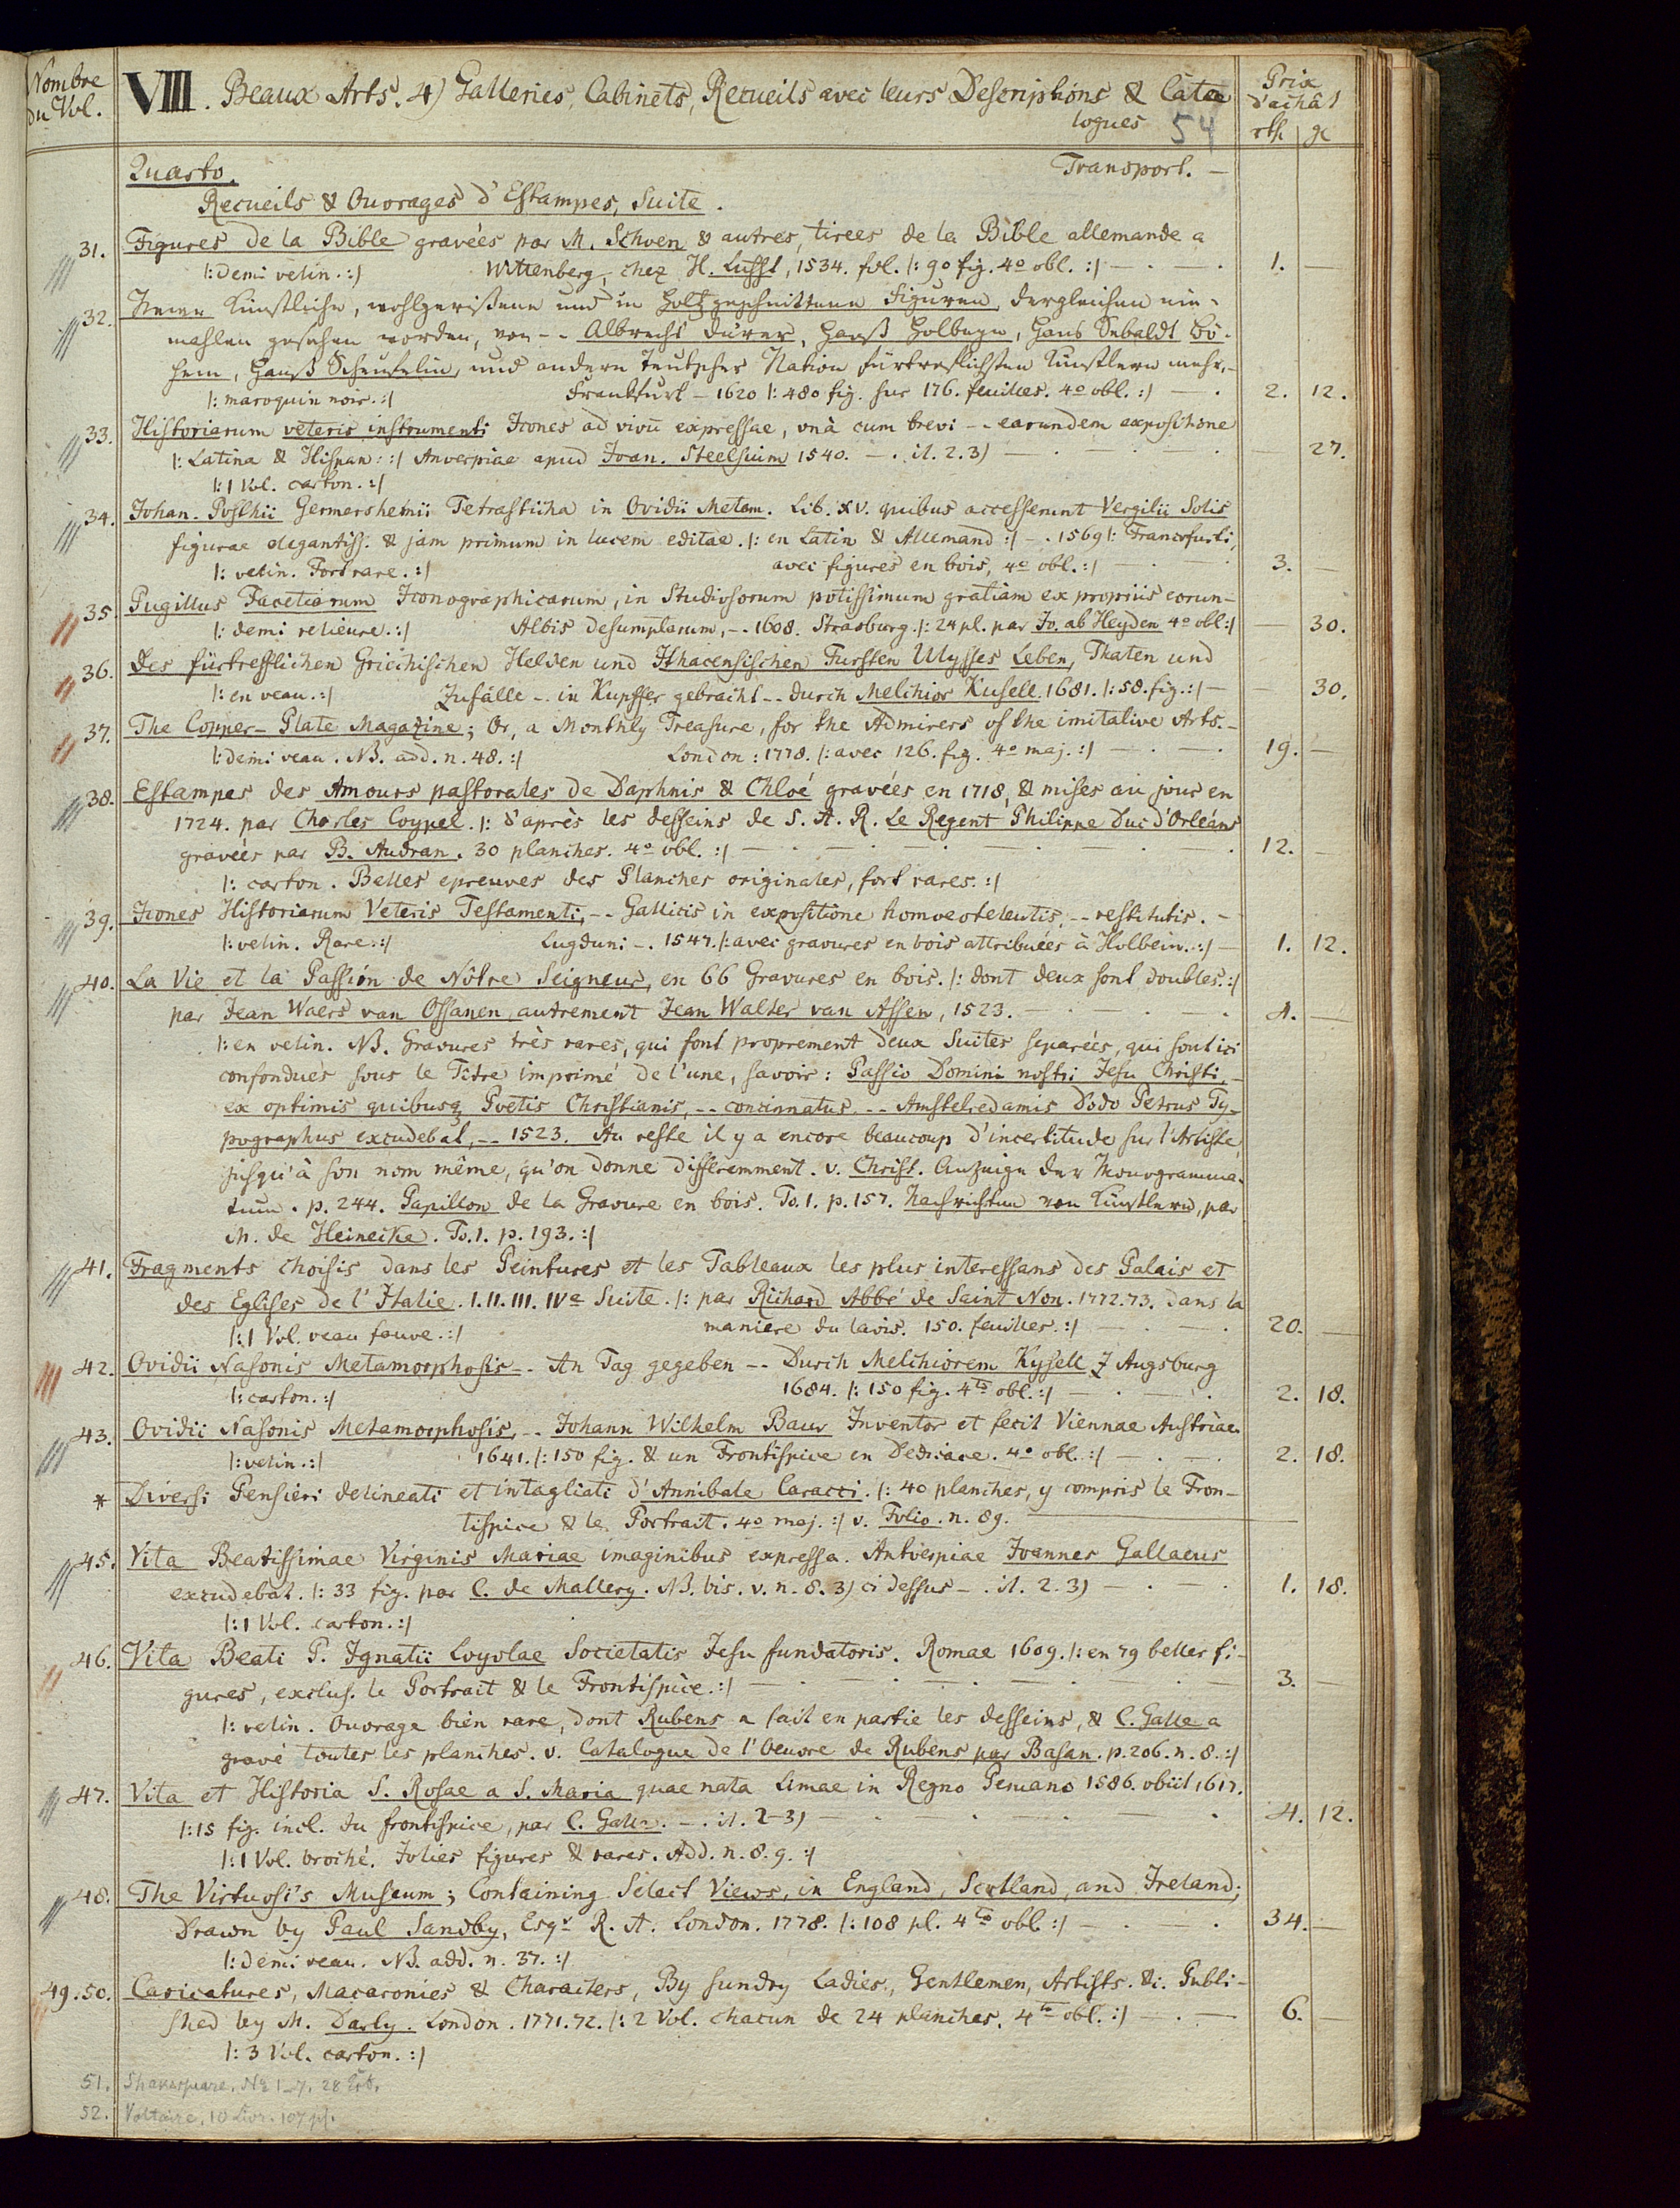 Nombre
du Vol.
VIII. Beaux Arts. 4) Galleries, Cabinets, Recueils avec leurs Descriptions & Cata
logues 54
Prix
d'achât
rth gc
Quarto. Transport. —
Recueils & Ouvrages d'Estampes, Suite.
31. Figures de la Bible gravées par M. Schoen & autres, tirees de la Bible allemande a
|: demi velin. :| Wittenberg, chez H. Lufft, 1534. fol. |: 90 fig. 4o obl. :| — . — . 1. —
32. Neuwe Künstliche, wohlgerißene und in Holtz geschnittene Figuren, dergleichen nie-
mahlen gesehen worden, von -- Albrecht Dürer, Hanß Holbeyn, Hans Sebaldt Bö-
hem, Hanß Scheufelin, und andern Teutscher Nation fürtreflichsten Künstlern mehr. -
|: maroquin noir. :| Frankfurt - 1620 |: 480 fig. sur 176. feuilles. 4o obl. :| — . 2. 12.
33. Historiarum veteris instrumenti Icones ad vivũ expressae, unà cum brevi -- earundem expositione
|: Latina & Hispan: :| Anverpiae apud Joan. Steelsium 1540. — . it. 2. 3) — . — . — . — 27.
|: 1 Vol. carton. :|
34. Johan. Posthii Germershemii Tetrasticha in Ovidii Metam. Lib. XV. quibus accesserunt Vergilii Solis
figurae elegantiss. & jam primum in lucem editae. |: en Latin & Allemand :| -. 1569 |: Francofurti,
|: velin. Fort rare. :| avec figures en bois, 4o obl. :| — . — . 3. —
35. Pugillus Facetiarum Iconographicarum, in Studiosorum potissimum gratiam ex propriis eorun-
|: demi relieure. :| Albis desumptarum, -. 1608. Strasburg. |: 24 pl. par Jo. ab Heyden 4o obl :| — 30.
36. Des fürtrefflichen Griechischen Helden und Ithacensischen Fursten Ulysses Leben, Thaten und
|: en veau. :| Zufälle -. in Kupffer gebracht -- durch Melchior Kusell. 1681. |: 58. fig. :| — — 30.
37. The Copper-Plate Magazine; Or, a Monthly Treasure, for the Admirers of the imitative Arts. -
|: demi veau. NB. add. n. 48. :| London: 1778. |: avec 126. fig. 4o maj. :| — . — . 19. —
38. Estampes des Amours pastorales de Daphnis & Chloé gravées en 1718, & mises au jour en
1724. par Charles Coypel. |: d'après les desseins de S. A. R. Le Regent Philippe Duc d'Orleáns
gravées par B. Audran. 30 planches. 4o obl. :| — . — . — . — . 12. —
|: carton. Belles epreuves des Planches originales, fort rares. :|
39. Icones Historiarum Veteris Testamenti, -- Gallicis in expositione homoeoteleutis, -- restitutis. -
|: velin. Rare. :| Lugduni -. 1547. |: avec gravures en bois attribuées à Holbein. :| — 1. 12.
40. La Vie et la Passion de Nôtre Seigneur, en 66 Gravures en bois. |: dont deux sont doubles. :|
par Jean Waers van Ossanen autrement Jean Walter van Assen, 1523. — . — . — . 4. —
|: en velin. NB. Gravures très rares, qui font proprement deux Suites separées, qui sont ici
confondues sous le Titre imprimé de l'une, savoir: Passio Domini nostri Jesu Christi, -
ex optimis quibusq Poetis Christianis, -- concinnatus. -- Amstelredamis Dodo Petrus Ty-
pographus excudebat, -- 1523. Au reste il y a encore beaucoup d'incertitude sur l'Artiste,
jusqu'à son nom même, qu'on donne differemment. v. Christ. Anzeige der Monogramma-
tum. p. 244. Papillon de la Gravure en bois. To. 1. p. 157. Nachrichten von Künstlern, par
M. de Heinecke. To. 1. p. 193. :|
41. Fragments choisis dans les Peintures et les Tableaux les plus interessans des Palais et
des Eglises de l'Italie. I. II. III. IVe Suite. |: par Richard Abbé de Saint Non. 1772. 73. dans la
|: 1 Vol. veau fauve. :| maniere du lavis. 150. feuilles. :| — . — . 20. —
42. Ovidii Nasonis Metamorphosis -. An Tag gegeben -- Durch Melchiorem Kysell Z Augsburg
|: carton. :| 1684. |: 150 fig. 4to obl. :| — . — . 2. 18.
43. Ovidii Nasonis Metamorphosis, -. Johann Wilhelm Baur Inventor et fecit Viennae Austriae.
|: velin. :| 1641. |: 150 fig. & un Frontispice en Dedicace. 4o obl. :| — . — . 2. 18.
* Diversi Pensieri delineati et intagliati d'Annibale Caracci. |: 40 planches, y compris le Fron-
tispice & le Portrait. 4o maj. :| v. Folio. n. 89. —
45. Vita Beatissimae Virginis Mariae imaginibus expressa. Antverpiae Joannes Gallaeus
excudebat. |: 33 fig. par C. de Mallery. NB. bis. v. n. 8. 3) ci dessus -. it. 2. 3) — . — . 1. 18.
|: 1 Vol. carton. :|
46. Vita Beati P. Ignatii Loyolae Societatis Jesu fundatoris. Romae 1609. |: en 79 belles fi-
gures, exclus. le Portrait & le Frontispice. :| — . — . — . — 3. —
|: velin. Ouvrage bien rare, dont Rubens a fait en partie les desseins, & C. Galle a
gravé toutes les planches. v. Catalogue de l'Oeuvre de Rubens par Basan. p. 206. n. 8. :|
47. Vita et Historia S. Rosae a S. Maria quae nata Limae in Regno Peruano 1586. obiit 1617.
|: 15 fig. incl. du frontispice, par C. Galle. -. it. 2-3) — . — . — . — . 4. 12.
|: 1 Vol. broché. Jolies figures & rares. Add. n. 8. 9. :|
48. The Virtuosi's Museum; Containing Select Views, in England, Scotland, and Ireland;
Drawn by Paul Sandby, Esqr. R. A. London. 1778. |: 108 pl. 4to obl. :| — . — . 34. —
|: demi veau. NB. add. n. 37. :|
49. 50. Caricatures, Macaronies & Characters, By Sundry Ladies, Gentlemen, Artists. &c. Publi-
shed by M. Darly. London. 1771. 72. |: 2 Vol. chacun de 24 planches. 4to obl. :| — . — 6. —
|: 3 Vol. carton. :|
51. Shakespeare. No 1-7. 28
52. Voltaire, 10 Livr. 107 pl.